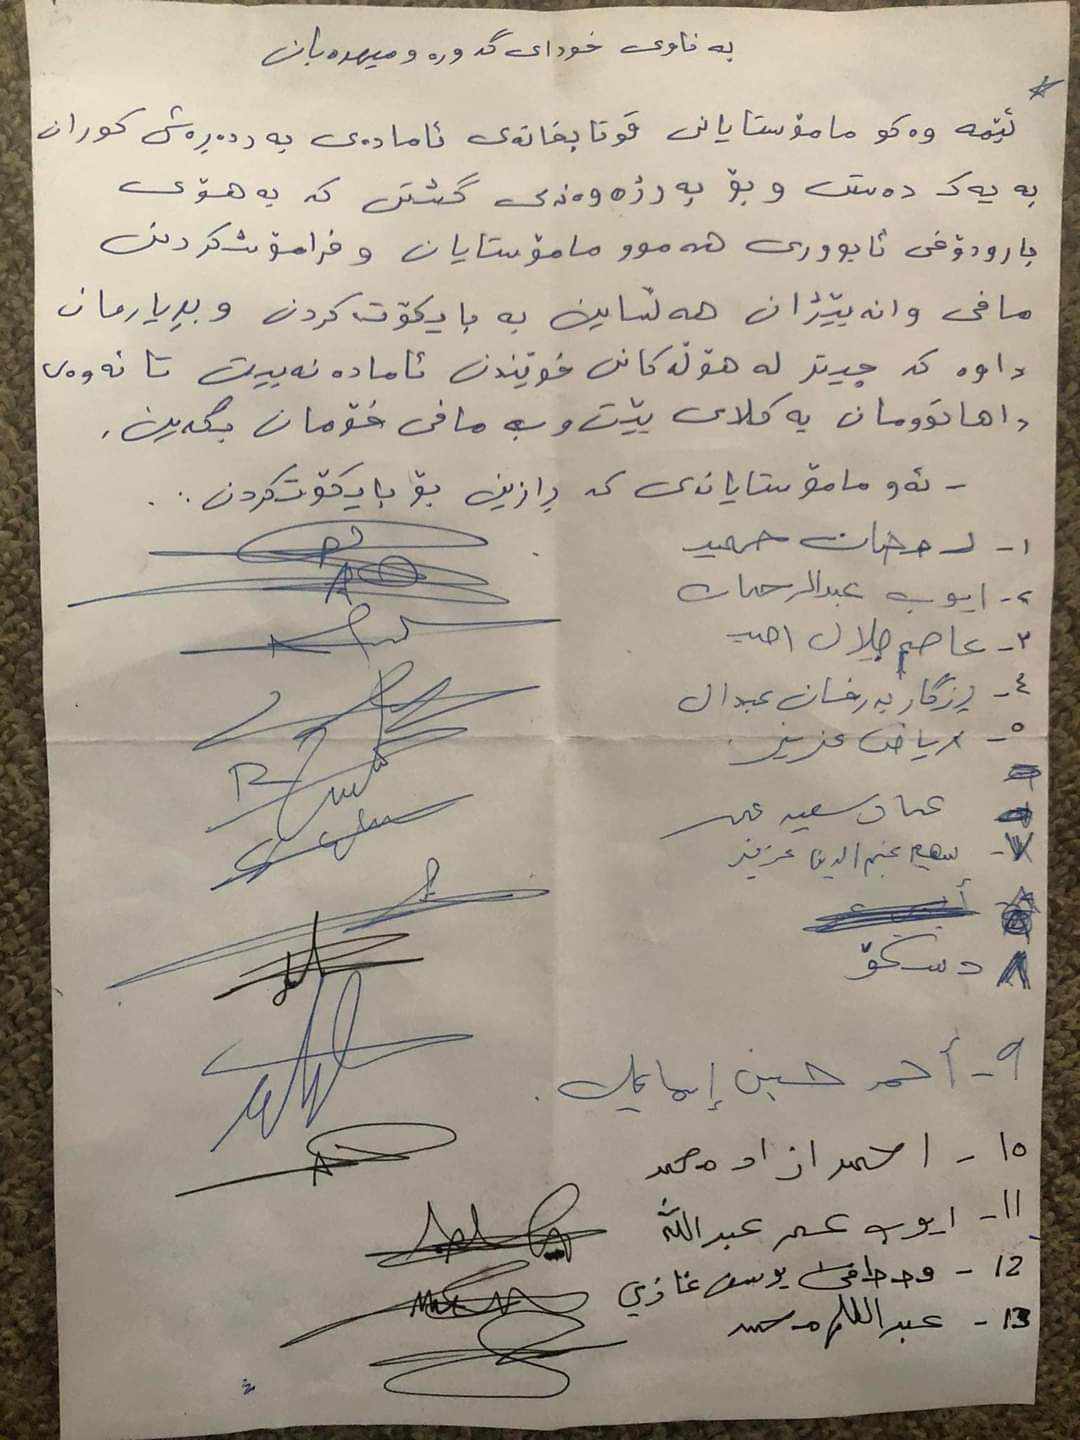 بە ناوی خودای گەورە و میهرەبان
ئێمە وەکو مامۆستایانی قوتابخانەی ئامادەی بەردەڕەش کوران
بە یەک دەست و بۆ بەرژەوەندی گشتی کە بە هۆی
بارودۆخی ئابووری هەموو مامۆستایان و فرامۆشکردنی
مافی وانەبێژان هەڵساین بە بایکۆت کردن و بڕیارمان
داوە کە چیتر لە هۆڵەکانی خوێندن ئامادە نەبیت تا ئەوەی
داهاتوومان یەکلای بێت و بە مافی خۆمان بگەین.
- ئەو مامۆستایانەی کە ڕازین بۆ بایکۆت کردن ..
١- حمید
٢- ایوب عبدالرحمان
٣- عاصم جلال احمد
٤- ڕزگار بەرخسان عبدال
٥- ریاض عزیز
عماد سعید عمر
٧- نجم الدین عزیز
٨ دسکۆ
٩- أحمد حسين إسماعيل
١٥ - احمد ازاد محمد
١١- ایوب عمر عبدالله
12 - یوسف غازی
13 - محمد